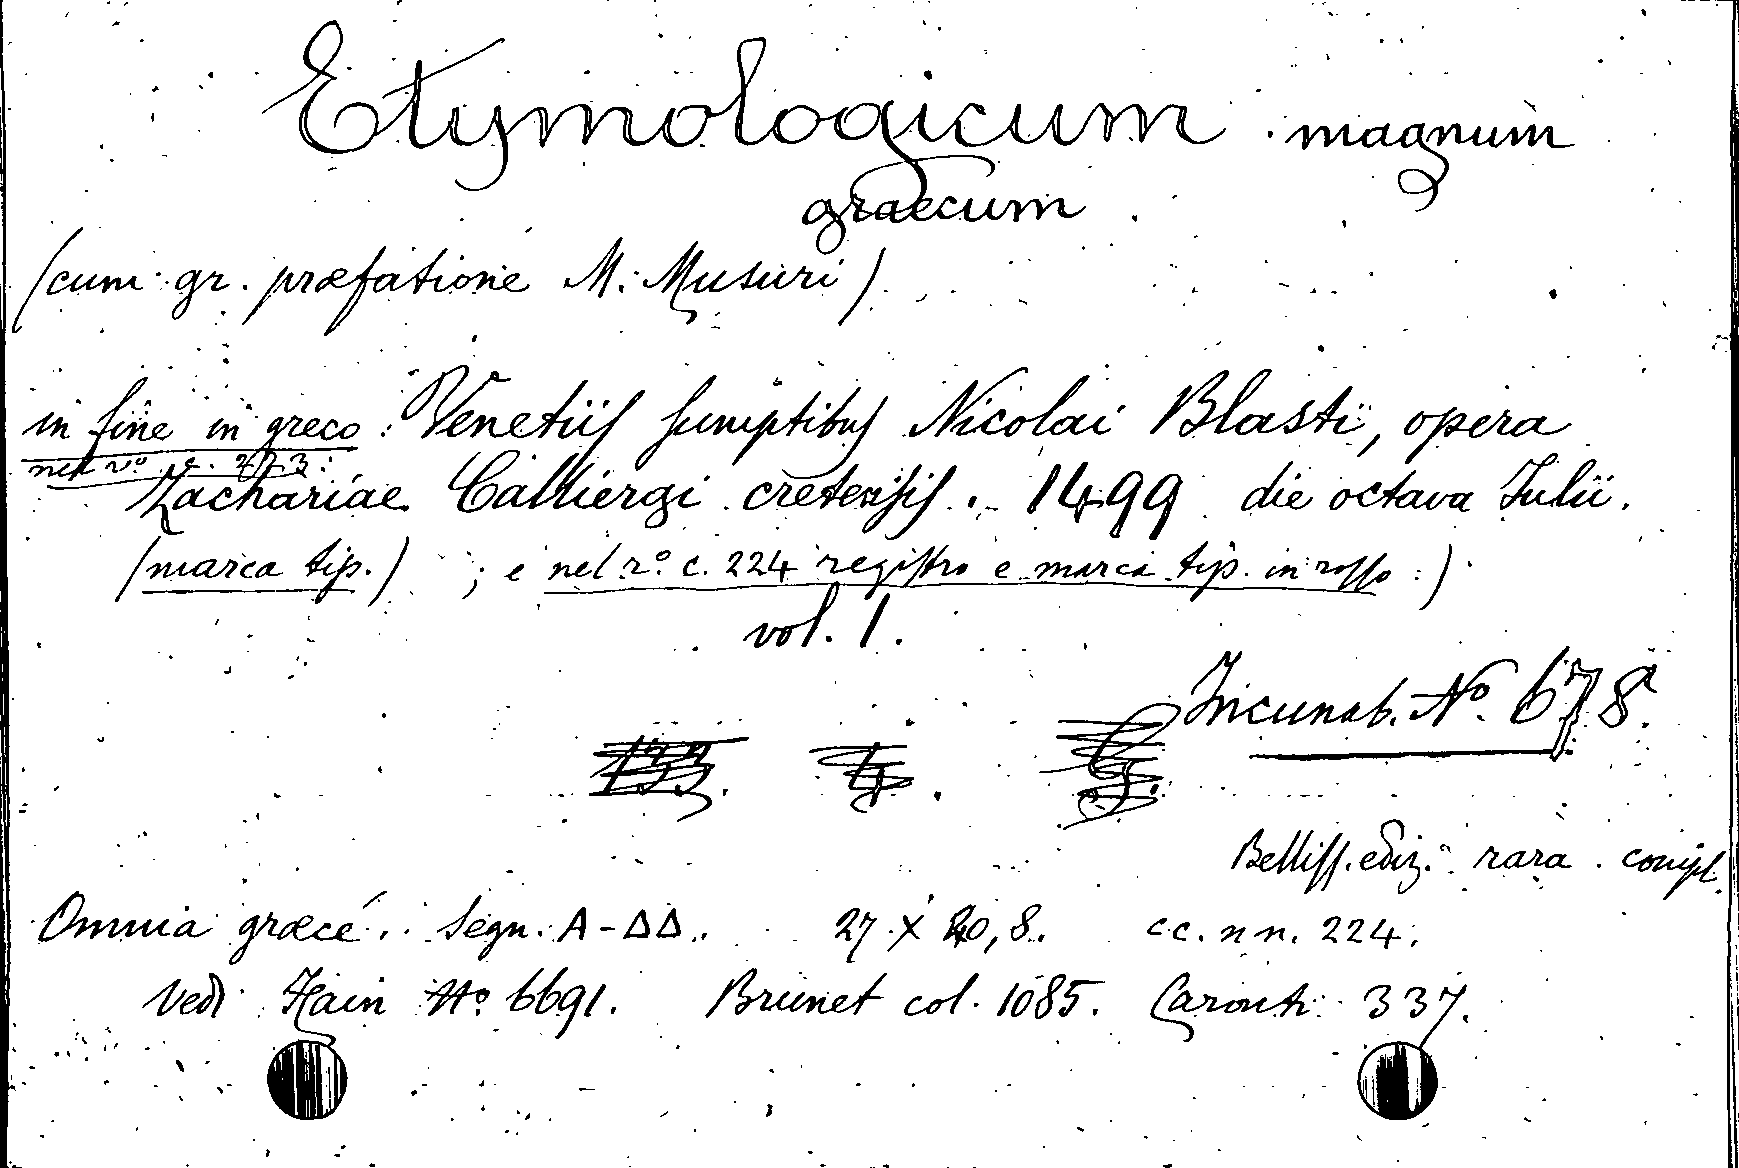 Etymologicum magnum
graecum
(cum gr. præfatione M. Musuri)
in fine in greco: Venetiis sumptibus Nicolai Blasti, opera
nel vº c. 223:
Zachariae Calliergi cretensis. 1499 die octava Iulii.
(marca tip.) ; e nel rº. c. 224 registro e marca tip. in rosso:)
vol. 1.
Incunab. Nº. 678.
Belliss. ediz. rara compl.
Omnia græcé. Segn. A-ΔΔ. 27 X 20,8. cc. nn. 224.
Vedi Hain Nº 6691. Brunet col. 1085. Caronti 337.